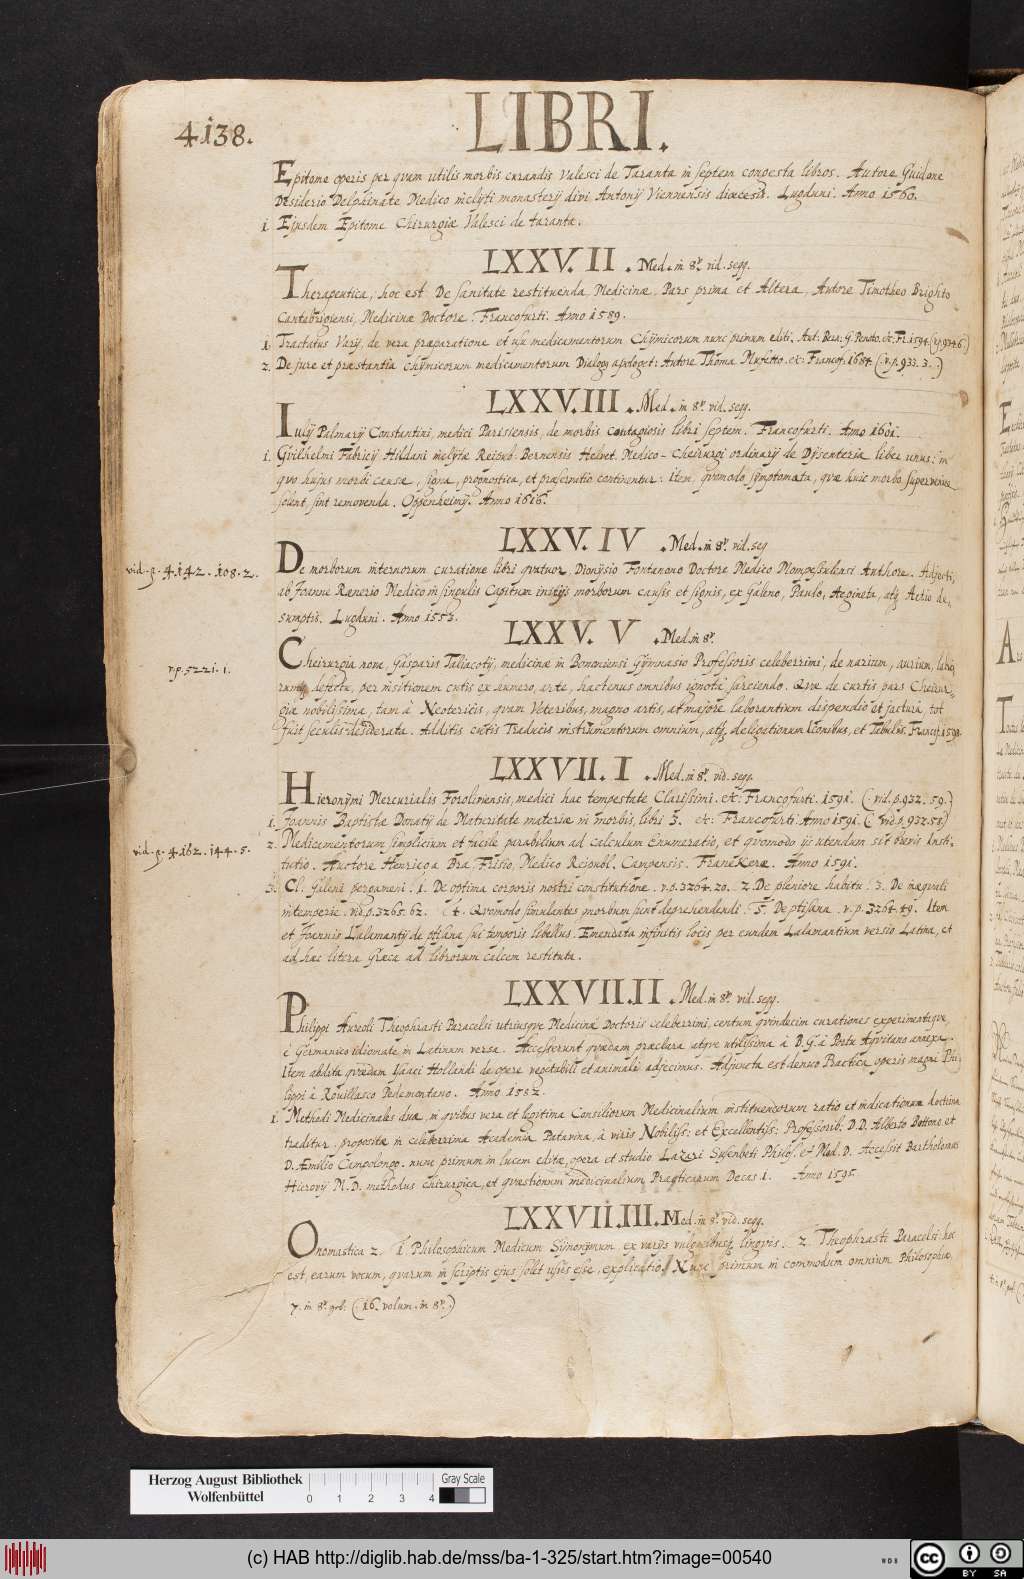 4138.
LIBRI.
Epitome operis per quam utilis morbis curandis Valesci de Taranta in septem congesta libros. Autore Guidone
Desiderio Delphinate Medico inclyti monasterij divi Antonij Viennensis diœcesis. Lugduni. Anno 1560.
1. Ejusdem Epitome Chirurgiæ Valesci de taranta.
LXXV. II. Med. in 8º. vid. seqq.
Therapeutica, hoc est De sanitate restituenda, Medicinæ Pars prima et Altera, Autore Timotheo Brighto
Cantabrigiensi, Medicinæ Doctore. Francofurti. Anno 1589.
1. Tractatus Varij de vera præparatione et usu medicamentorum Chymicorum nunc primum editi. Aut: Bern: G. Penoto. &c. Fr. 1594.
2. De jure et præstantia Chymicorum medicamentorum Dialog, apologet: Autore Thoma Muffetto. &c: Francof. 1684. (v. p. 933. 3.)
LXXV. III. Med. in 8º. vid. seqq.
Iulij Palmarij Constantini, medici Parisiensis, de morbis contagiosis libri septem. Francofurti. Anno 1601.
1. Guilhelmi Fabricij Hildani inclytæ Reipub. Bernensis Helvet. Medico-Cheirurgi ordinarij de Dysenteria liber unus: in
quo hujus morbi causæ, signa, prognostica, et præservatio continentur: Item, quomodo symptomata, quæ huic morbo supervenire
solent sint removenda. Oppenheimij. Anno 1616.
LXXV. IV. Med. in 8º. vid. seq
vid. p. 4142. 108. 2.
De morborum internorum curatione libri quatuor, Dionysio Fontanono Doctore Medico Mompessulensi Authore. Adjecti,
ab Joanne Raenerio Medico in singulis Capitum initijs morborum causis et signis, ex Galeno, Paulo, Aegineta, atq Aetio de-
sumptis. Lugduni. Anno 1553.
LXXV. V. Med. in 8º.
v. p. 5221. 1.
Cheirurgia nova, Gasparis Taliacotij, medicinæ in Bononiensi Gymnasio Professoris celeberrimi, de narium, aurium, labio-
rumq defectu, per insitionem cutis ex humero, arte, hactenus omnibus ignotâ sarciendo. Quæ de curtis pars Cheirur-
giæ nobilissima, tam à Neotericis, quam Veteribus, magno artis, at majore laborantium dispendio et jactura, tot
fuit seculis desiderata. Additis cutis Traducis instrumentorum omnium, atq deligationum Iconibus, et Tabulis. Francof. 1598.
LXXVII. I. Med. in 8º. vid. seqq.
Hieronymi Mercurialis Foroliviensis, medici hac tempestate Clarissimi. &c: Francofurti. 1591. (vid. p. 932. 59.)
1. Joannis Baptistæ Donatij de Maturitate materiæ in morbis, libri 3. &c: Francofurti Anno 1591. (vid p. 932. 58)
vid. p. 4162. 144. 5.
2. Medicamentorum simplicium et facile parabilium ad calculum Enumeratio, et quomodo ijs utendum sit brevis Insti-
tutio. Auctore Henrico a Bra Frisio, Medico Reipubl. Campensis. Franekeræ. Anno 1591.
3. Cl: Galeni pergameni. 1. De optima corporis nostri constitutione. v. p. 3264. 20. 2. De pleniore habitu. 3. De inæquali
intemperie. vid. p. 3265. 62. 4. Quomodo simulantes morbum sunt deprehendendi. 5. De ptisana. v. p. 3264. 49. Item
et Joannis Lalamantij de ptisana sui temporis libellus. Emendata infinitis locis per eundem Lalamantium versio Latina, et
ad hac litera Græca ad librorum calcem restituta.
LXXVII. II. Med. in 8º. vid. seqq.
Philippi Aureoli Theophrasti Paracelsi utriusque Medicinæ Doctoris celeberrimi, centum quindecim curationes experimentaque,
è Germanico idiomate in Latinum versa. Accesserunt quædam præclara atque utilissima à B. G. à Portu Aquitano annexa.
Item abdita quædam Isaaci Hollandi de opere vegetabili et animali adjecimus. Adjuncta est denuo Practica operis magni Phi-
lippi à Rouillasco Pedemontano. Anno 1582.
1. Methodi Medicinales duæ, in quibus vera et legitima Consiliorum Medicinalium instituendorum ratio et indicationum doctrina
traditur, propositæ in celeberrima Academia Patavina, à viris Nobiliss: et Excellentiss: Professorib: D.D. Alberto Bottono et
D. Æmilio Campolongo. nunc primum in lucem editæ, opera et studio Lazari Susenbeti Philos. & Med. D. Accessit Bartholomæi
Hierovij M. D. methodus chirurgica, et quæstionum medicinalium Practicarum Decas 1. Anno 1595.
LXXVII. III. Med. in 8º. vid. seqq.
Onomastica 2. 1. Philosophicum Medicum Synonymum ex varijs vulgaribusq linguis. 2. Theophrasti Paracelsi: hoc
est, earum vocum, quarum in scriptis ejus solet usus esse, explicatio. Nunc primum in commodum omnium Philosophiæ
7. in 8º. (16. volum. in 8º.)
Herzog August Bibliothek
Wolfenbüttel
0 1 2 3 4
Gray Scale
(c) HAB http://diglib.hab.de/mss/ba-1-325/start.htm?image=00540
WDB
cc BY SA